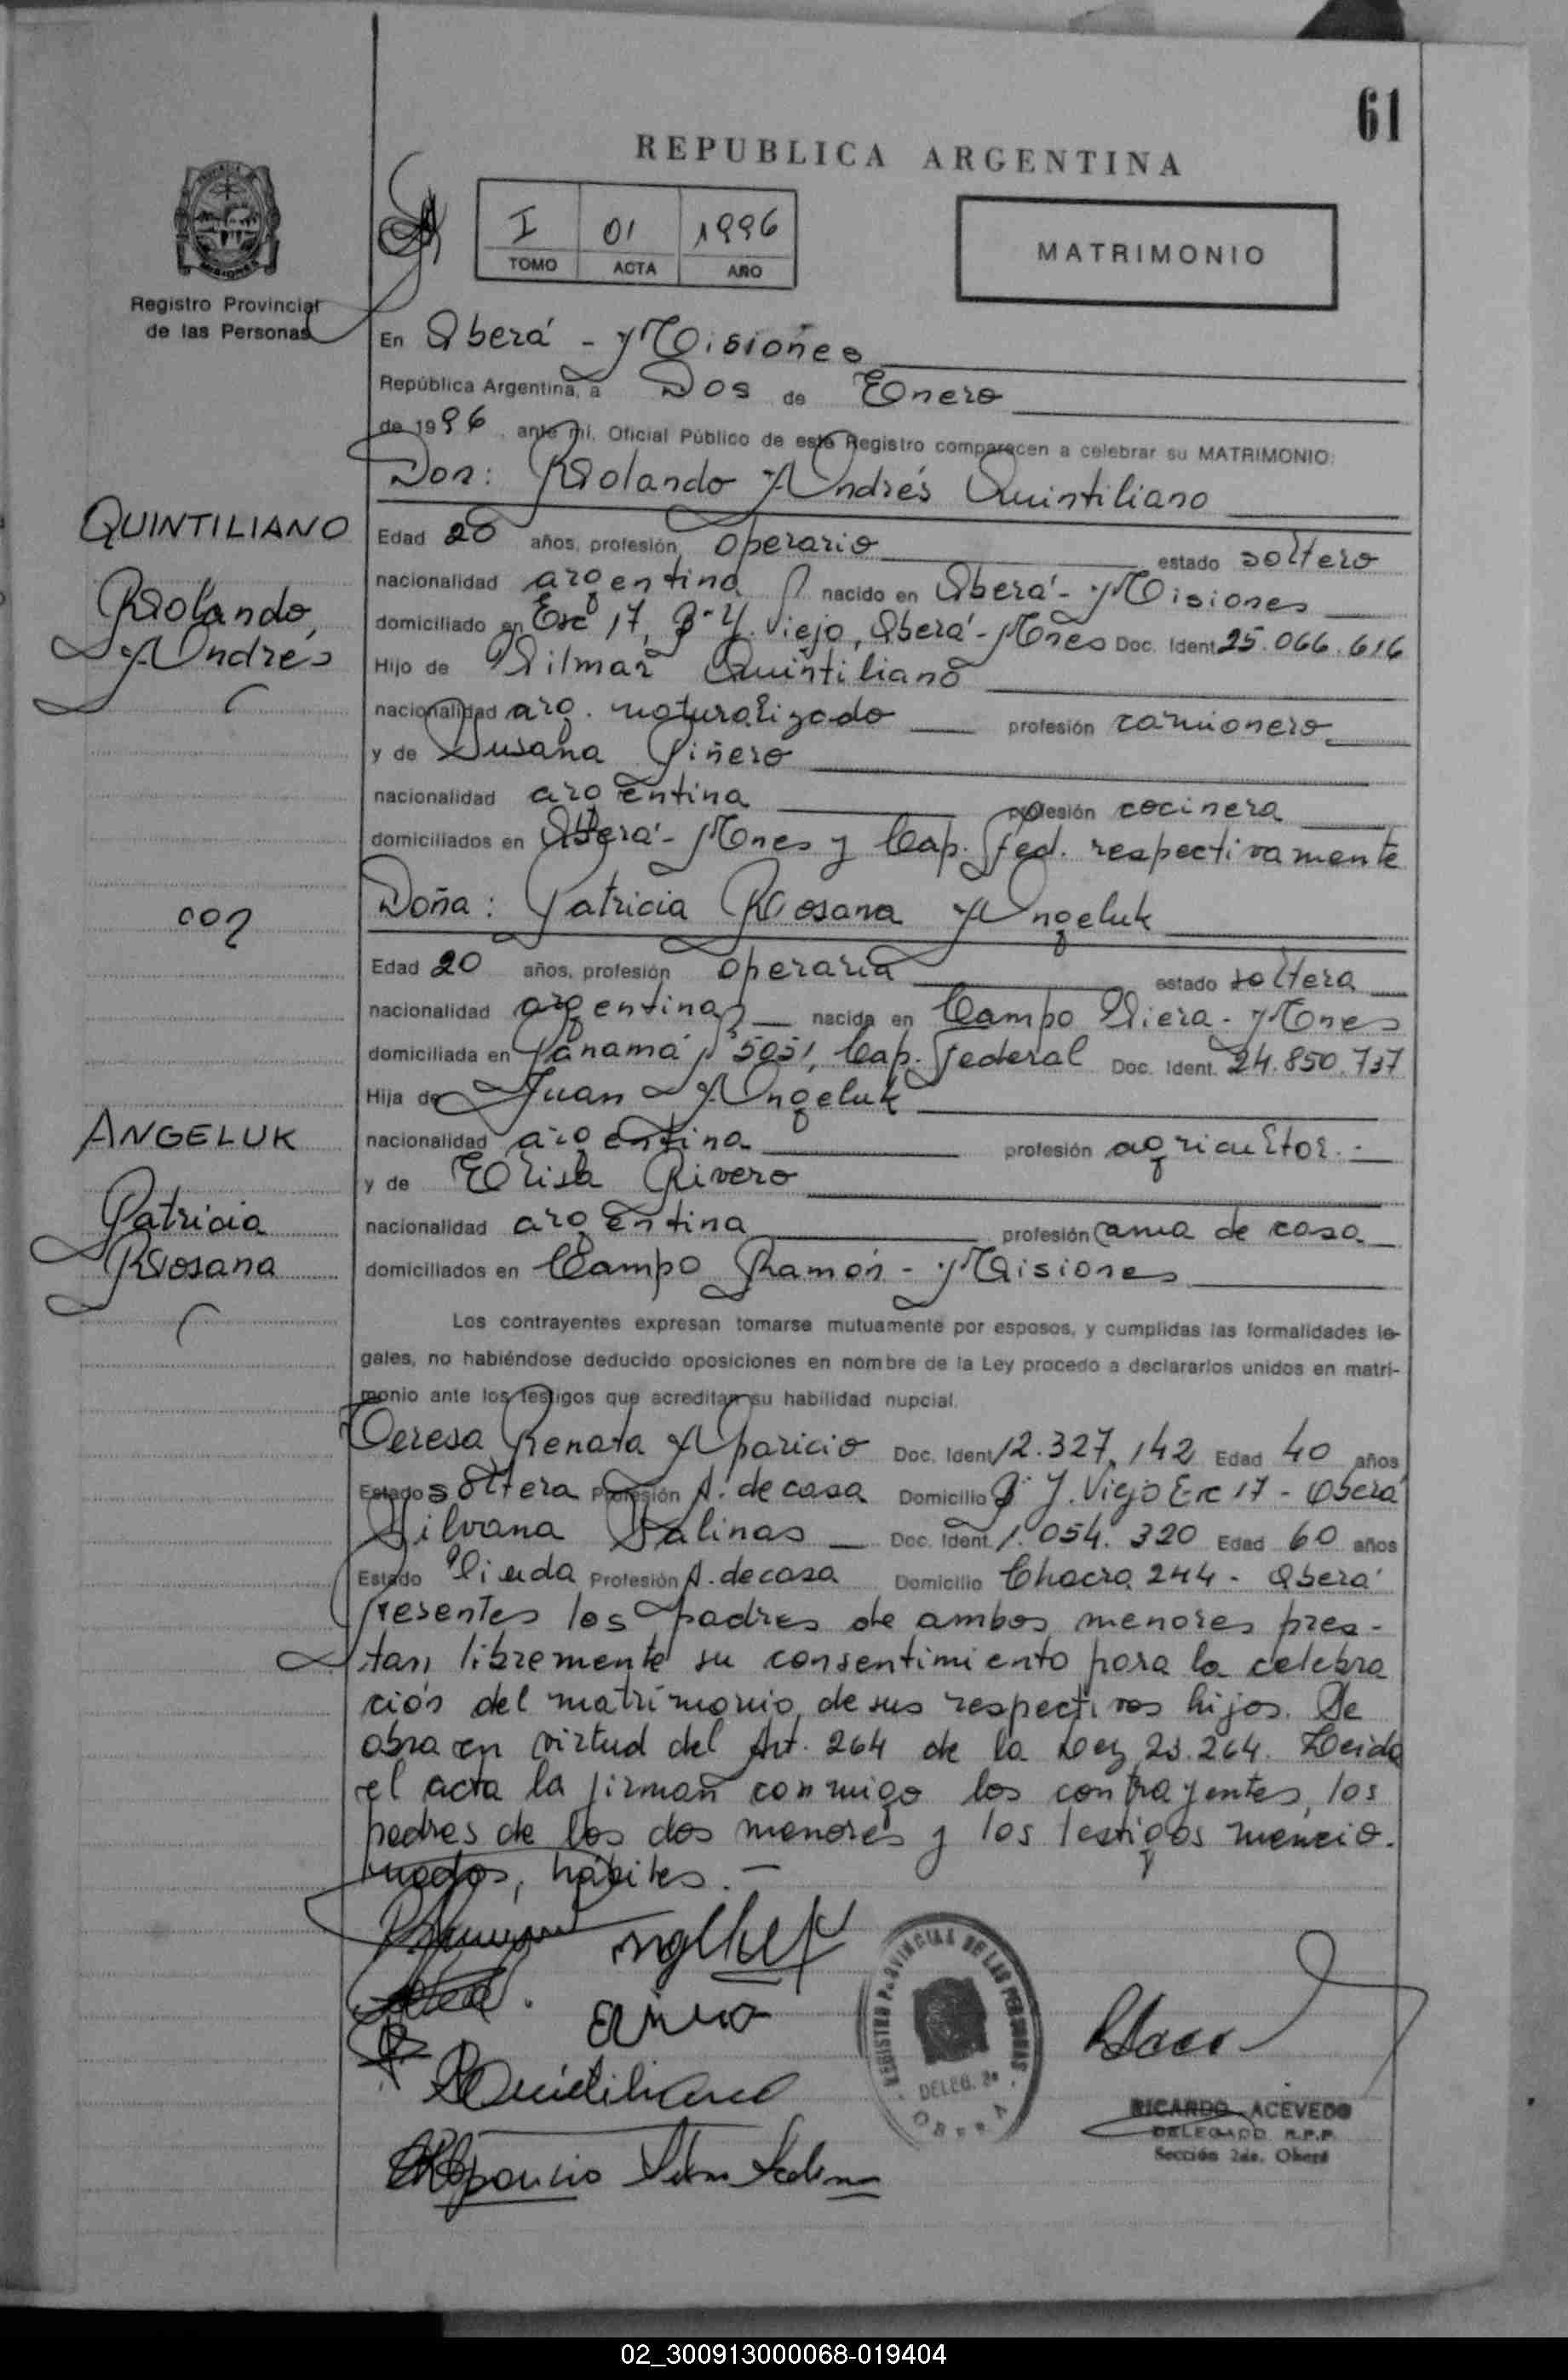 61
REPUBLICA ARGENTINA
I 01 1996
TOMO ACTA AÑO
MATRIMONIO
Registro Provincial
de las Personas
En Oberá - Misiones
República Argentina, a Dos de Enero
de 1996, ante mí, Oficial Público de este Registro comparecen a celebrar su MATRIMONIO:
Don: Rolando Andrés Quintiliano
QUINTILIANO
Rolando,
Andrés
Edad 20 años, profesión operario estado soltero
nacionalidad argentina nacido en Oberá - Misiones
domiciliado en Esc 17, Bº Y. Viejo, Oberá - Mnes Doc. Ident. 25.066.616
Hijo de Vilmar Quintiliano
nacionalidad arg. naturalizado profesión camionero
y de Susana Piñero
nacionalidad argentina profesión cocinera
domiciliados en Oberá - Mnes y Cap. Fed. respectivamente
con
Doña: Patricia Rosana Angeluk
Edad 20 años, profesión operaria estado soltera
nacionalidad argentina nacida en Campo Viera - Mnes
domiciliada en Panamá 5051, Cap. Federal Doc. Ident. 24.850.737
Hija de Juan Angeluk
ANGELUK
Patricia
Rosana
nacionalidad argentina profesión agricultor.-
y de Elisa Rivero
nacionalidad argentina profesión ama de casa
domiciliados en Campo Ramón - Misiones
Los contrayentes expresan tomarse mutuamente por esposos, y cumplidas las formalidades le-
gales, no habiéndose deducido oposiciones en nombre de la Ley procedo a declararlos unidos en matri-
monio ante los testigos que acreditan su habilidad nupcial.
Teresa Renata Aparicio Doc. Ident. 12.327.142 Edad 40 años
Estado soltera Profesión A. de casa Domicilio Bº Y. Viejo Esc 17 - Oberá
Silvana Salinas Doc. Ident. 1.054.320 Edad 60 años
Estado Viuda Profesión A. de casa Domicilio Chacra 244 - Oberá
Presentes los padres de ambos menores pres-
tan libremente su consentimiento para la celebra
ción del matrimonio de sus respectivos hijos. Se
obra en virtud del Art. 264 de la Ley 23.264. Leida
el acta la firman conmigo los contrayentes, los
padres de los dos menores y los testigos mencio-
nados, hábiles.-
REGISTRO PROVINCIAL DE LAS PERSONAS
DELEG. 2ª
OBERA
RICARDO ACEVEDO
DELEGADO R.P.P.
Sección 2da. Oberá
02_300913000068-019404